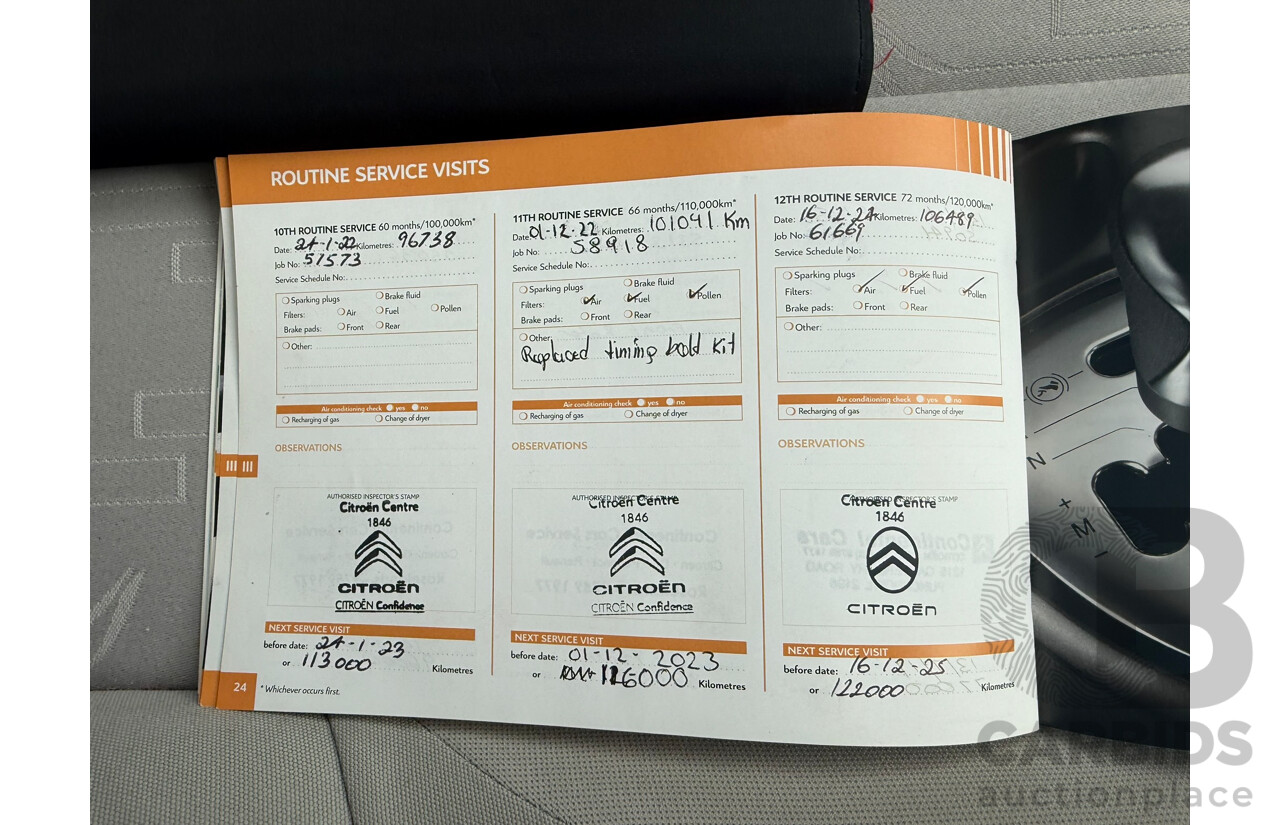 ROUTINE SERVICE VISITS
10TH ROUTINE SERVICE 60 months/100,000km*
Date: 24-1-22 Kilometres: 96738
Job No: 51573
Service Schedule No:
Sparking plugs Brake fluid
Filters: Air Fuel Pollen
Brake pads: Front Rear
Other:
Air conditioning check yes no
Recharging of gas Change of dryer
OBSERVATIONS
AUTHORISED INSPECTOR'S STAMP
Citroën Centre
1846
CITROËN
CITROËN Confidence
NEXT SERVICE VISIT
before date: 24-1-23
or 113000 Kilometres
24
* Whichever occurs first.
11TH ROUTINE SERVICE 66 months/110,000km*
Date: 01-12-22 Kilometres: 101041 Km
Job No: 58918
Service Schedule No:
Sparking plugs Brake fluid
Filters: Air Fuel Pollen
Brake pads: Front Rear
Other:
Replaced timing bold Kit
Air conditioning check yes no
Recharging of gas Change of dryer
OBSERVATIONS
AUTHORISED INSPECTOR'S STAMP
Citroën Centre
1846
CITROËN
CITROËN Confidence
NEXT SERVICE VISIT
before date: 01-12-2023
or 116000 Kilometres
12TH ROUTINE SERVICE 72 months/120,000km*
Date: 16-12-24 Kilometres: 106489
Job No: 61669
Service Schedule No:
Sparking plugs Brake fluid
Filters: Air Fuel Pollen
Brake pads: Front Rear
Other:
Air conditioning check yes no
Recharging of gas Change of dryer
OBSERVATIONS
AUTHORISED INSPECTOR'S STAMP
Citroën Centre
1846
CITROËN
NEXT SERVICE VISIT
before date: 16-12-25
or 122000 Kilometres
N
+
M
-
CARBIDS
auctionplace